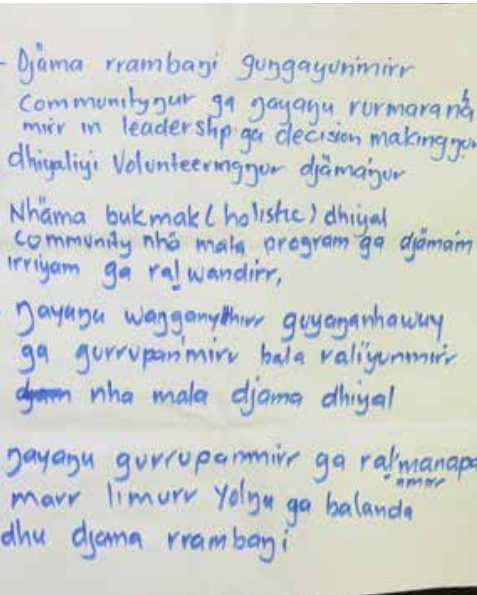 - Djäma rrambaŋi guŋgayunmirr
Communityŋur ga ŋayaŋu rurmaranha
mirr in leadershp ga decision makingŋur
dhiyaliyi Volunteeringŋur djämaŋur
Nhäma bukmak (holistic) dhiyal
Community nhä mala program ga djämam
irriyam ga ral wandirr,
ŋayaŋu waŋganythirr guyaŋanhawuy
ga gurrupan'mirr bala rali'yunmirr
nha mala djama dhiyal
ŋayaŋu gurrupanmirr ga ral'manapa
nmirr
marr limurr Yolŋu ga balanda
dhu djama rrambaŋi